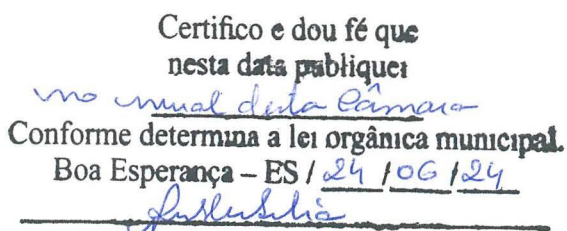 Certifico e dou fé que
nesta data publiquei
no mural desta Câmara
Conforme determina a lei orgânica municipal.
Boa Esperança – ES / 24 / 06 / 24